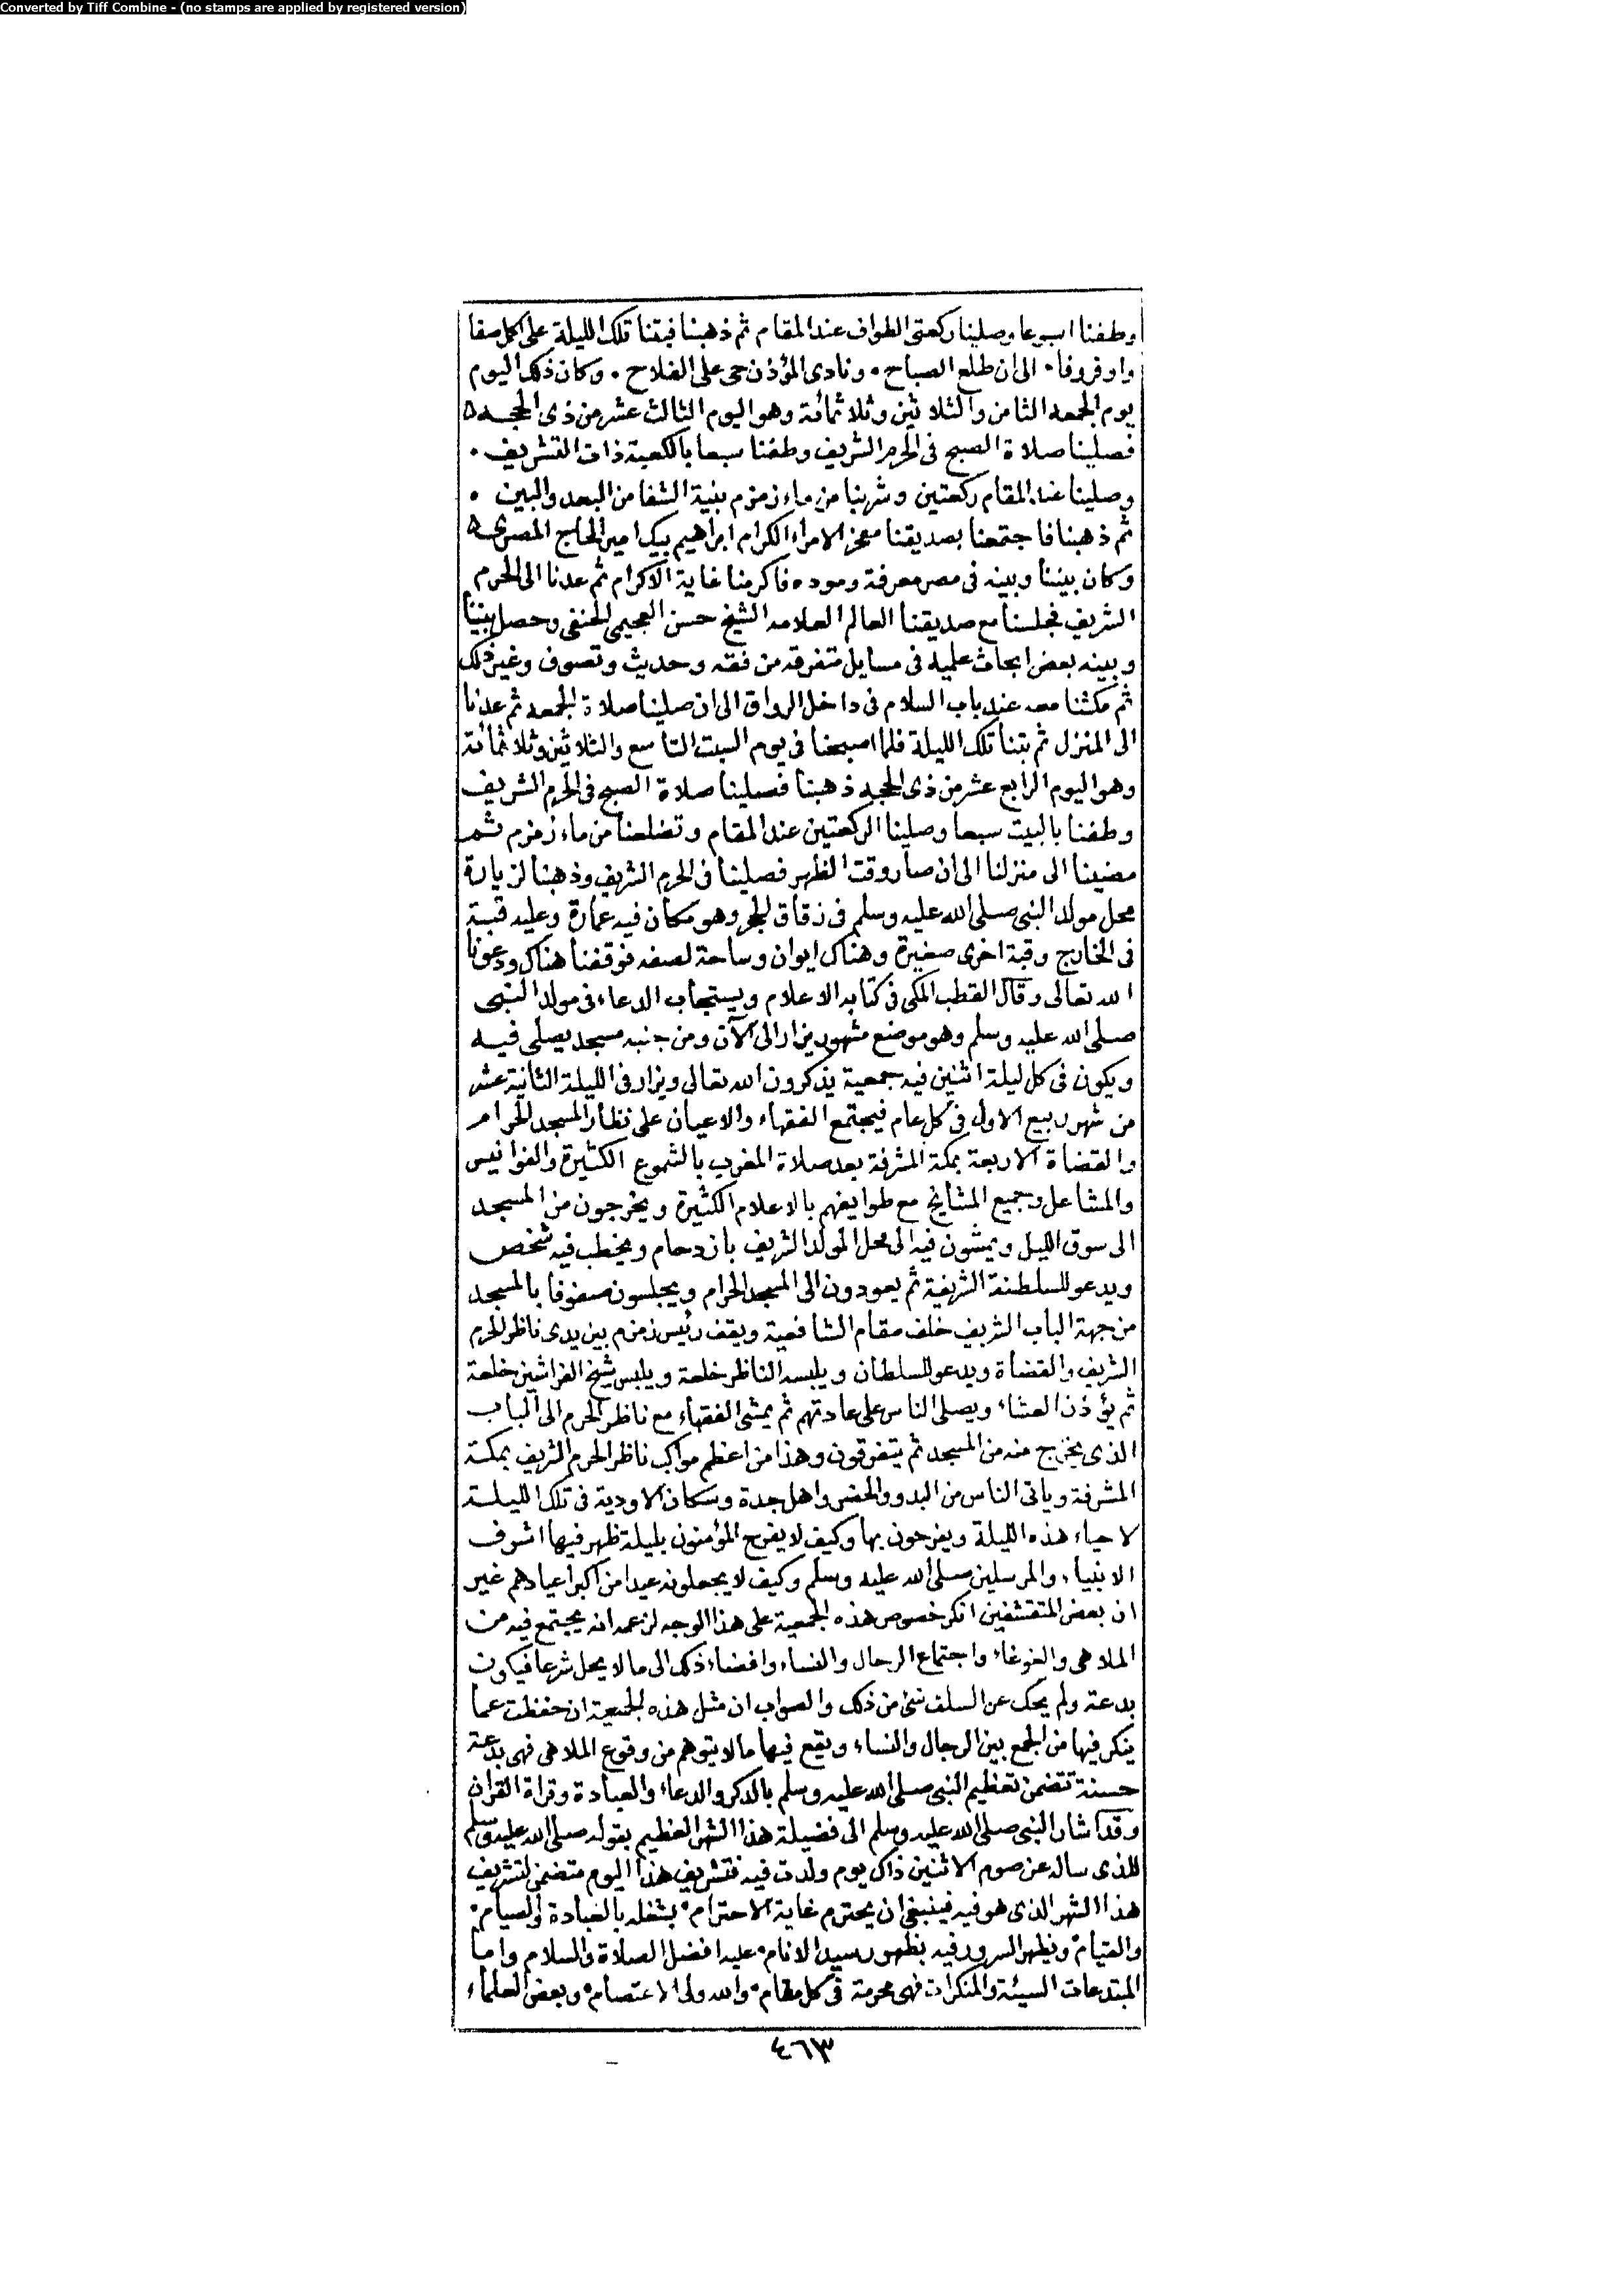 Converted by Tiff Combine - (no stamps are applied by registered version)
وطفنا اسبوعا وصلينا ركعتى الطواف عند المقام ثم ذهبنا فبتنا تلك الليلة على اكل صفا
واوفر وفا٠ الى ان طلع الصباح٠ ونادى المؤذن حى على الفلاح٠ وكان ذلك اليوم
يوم الجمعه الثامن والثلاثين وثلاثمائة وهو اليوم الثالث عشر من ذى الحجه
فصلينا صلاة الصبح فى الحرم الشريف وطفنا سبعا بالكعبة ذات التشريف٠
وصلينا عند المقام ركعتين وشربنا من ماء زمزم بنية الشفا من البعد والبين٠
ثم ذهبنا فاجتمعنا بصديقنا معز الامراء الكرام ابراهيم بيك امير الحاج المصرى
وكان بيننا وبينه فى مصر معرفة وموده فاكرمنا غاية الاكرام ثم عدنا الى الحرم
الشريف فجلسنا مع صديقنا العالم العلامه الشيخ حسن العجيمى الحنفى وحصل بيننا
وبينه بعض ابحاث علميه فى مسايل متفرقه من فقه وحديث وتصوف وغير ذلك
ثم مكثنا معه عند باب السلام فى داخل الرواق الى ان صلينا صلاة الجمعه ثم عدنا
الى المنزل ثم بتنا تلك الليلة فلما اصبحنا فى يوم السبت التاسع والثلاثين وثلاثمائة
وهو اليوم الرابع عشر من ذى الحجه ذهبنا فصلينا صلاة الصبح فى الحرم الشريف
وطفنا بالبيت سبعا وصلينا الركعتين عند المقام وتضلعنا من ماء زمزم ثم
مضينا الى منزلنا الى ان صار وقت الظهر فصلينا فى الحرم الشريف وذهبنا لزيارة
محل مولد النبى صلى الله عليه وسلم فى زقاق الحجر وهو مكان فيه عمارة وعليه قبة
فى الخارج وقبة اخرى صغيرة وهناك ايوان وساحة لصفه فوقفنا هناك ودعونا
الله تعالى وقال القطب المكى فى كتابه الاعلام ويستجاب الدعاء فى مولد النبى
صلى الله عليه وسلم وهو موضع مشهور يزار الى الآن ومن جنبه مسجد يصلى فيه
ويكون فى كل ليلة اثنين فيه جمعية يذكرون الله تعالى ويزار فى الليلة الثانية عشر
من شهر ربيع الاول فى كل عام فيجتمع الفقهاء والاعيان على نظار المسجد الحرام
والقضاة الاربعة بمكة المشرفة بعد صلاة المغرب بالشموع الكثيرة والفوانيس
والمشاعل وجميع المشايخ مع طوايفهم بالاعلام الكثيرة ويخرجون من المسجد
الى سوق الليل ويمشون فيه الى محل المولد الشريف بازدحام ويخطب فيه شخص
ويدعو للسلطنة الشريفة ثم يعودون الى المسجد الحرام ويجلسون صفوفا بالمسجد
من جهة الباب الشريف خلف مقام الشافعية ويقف رئيس زمزم بين يدى ناظر الحرم
الشريف والقضاة ويدعو للسلطان ويلبسه الناظر خلعة ويلبس شيخ الفراشين خلعة
ثم يؤذن العشاء ويصلى الناس على عادتهم ثم يمشى الفقهاء مع ناظر الحرم الى الباب
الذى يخرج منه من المسجد ثم يتفرقون وهذا من اعظم مواكب ناظر الحرم الشريف بمكة
المشرفة وياتى الناس من البدو والحضر واهل جدة وسكان الاودية فى تلك الليلة
لاحياء هذه الليلة ويفرحون بها وكيف لا يفرح المؤمنون بليلة ظهر فيها اشرف
الانبياء والمرسلين صلى الله عليه وسلم وكيف لا يجعلونه عيدا من اكبر اعيادهم غير
ان بعض المتقشفين انكر خصوص هذه الجمعية على هذا الوجه لزعمه انه يجتمع فيه من
الملاهى والغوغاء واجتماع الرجال والنساء وافضاء ذلك الى ما لا يحل شرعا فيكون
بدعة ولم يحك عن السلف شئ من ذلك والصواب ان مثل هذه الجمعية ان حفظت عما
ينكر فيها من الجمع بين الرجال والنساء ويقع فيها ما لا يتوهم من وقوع الملاهى فهى بدعة
حسنة تتضمن تعظيم النبى صلى الله عليه وسلم بالذكر والدعاء والعبادة وقراة القران
وقد اشار النبى صلى الله عليه وسلم الى فضيلة هذا الشهر العظيم بقوله صلى الله عليه وسلم
للذى ساله عن صوم الاثنين ذاك يوم ولدت فيه فتشريف هذا اليوم متضمن لتشريف
هذا الشهر الذى هو فيه فينبغى ان يحترم غاية الاحترام٠ بشغله بالعبادة والصيام٠
والقيام٠ ويظهر السرور فيه بظهور سيد الانام٠ عليه افضل الصلاة والسلام واما
المبتدعات السيئة والمنكرات فهى محرمة فى كل مقام٠ والله ولى الاعتصام٠ وبعض العلماء
٤٦٣